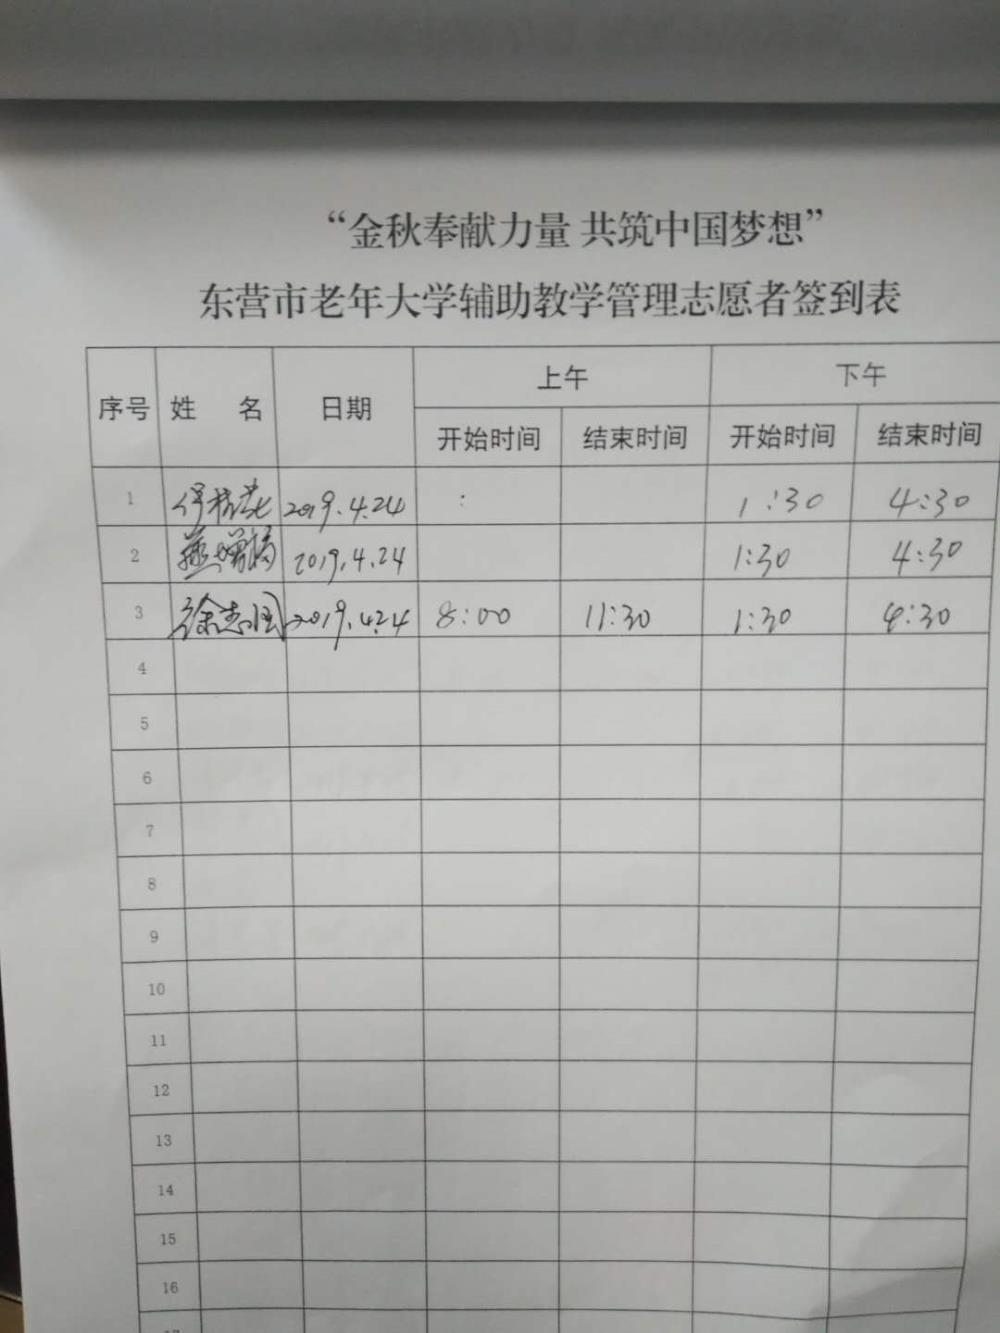 “金秋奉献力量 共筑中国梦想”
东营市老年大学辅助教学管理志愿者签到表
序号 姓 名 日期 上午 下午
开始时间 结束时间 开始时间 结束时间
1 2019.4.24 : 1:30 4:30
2 2019.4.24 1:30 4:30
3 2019.4.24 8:00 11:30 1:30 4:30
4
5
6
7
8
9
10
11
12
13
14
15
16
17